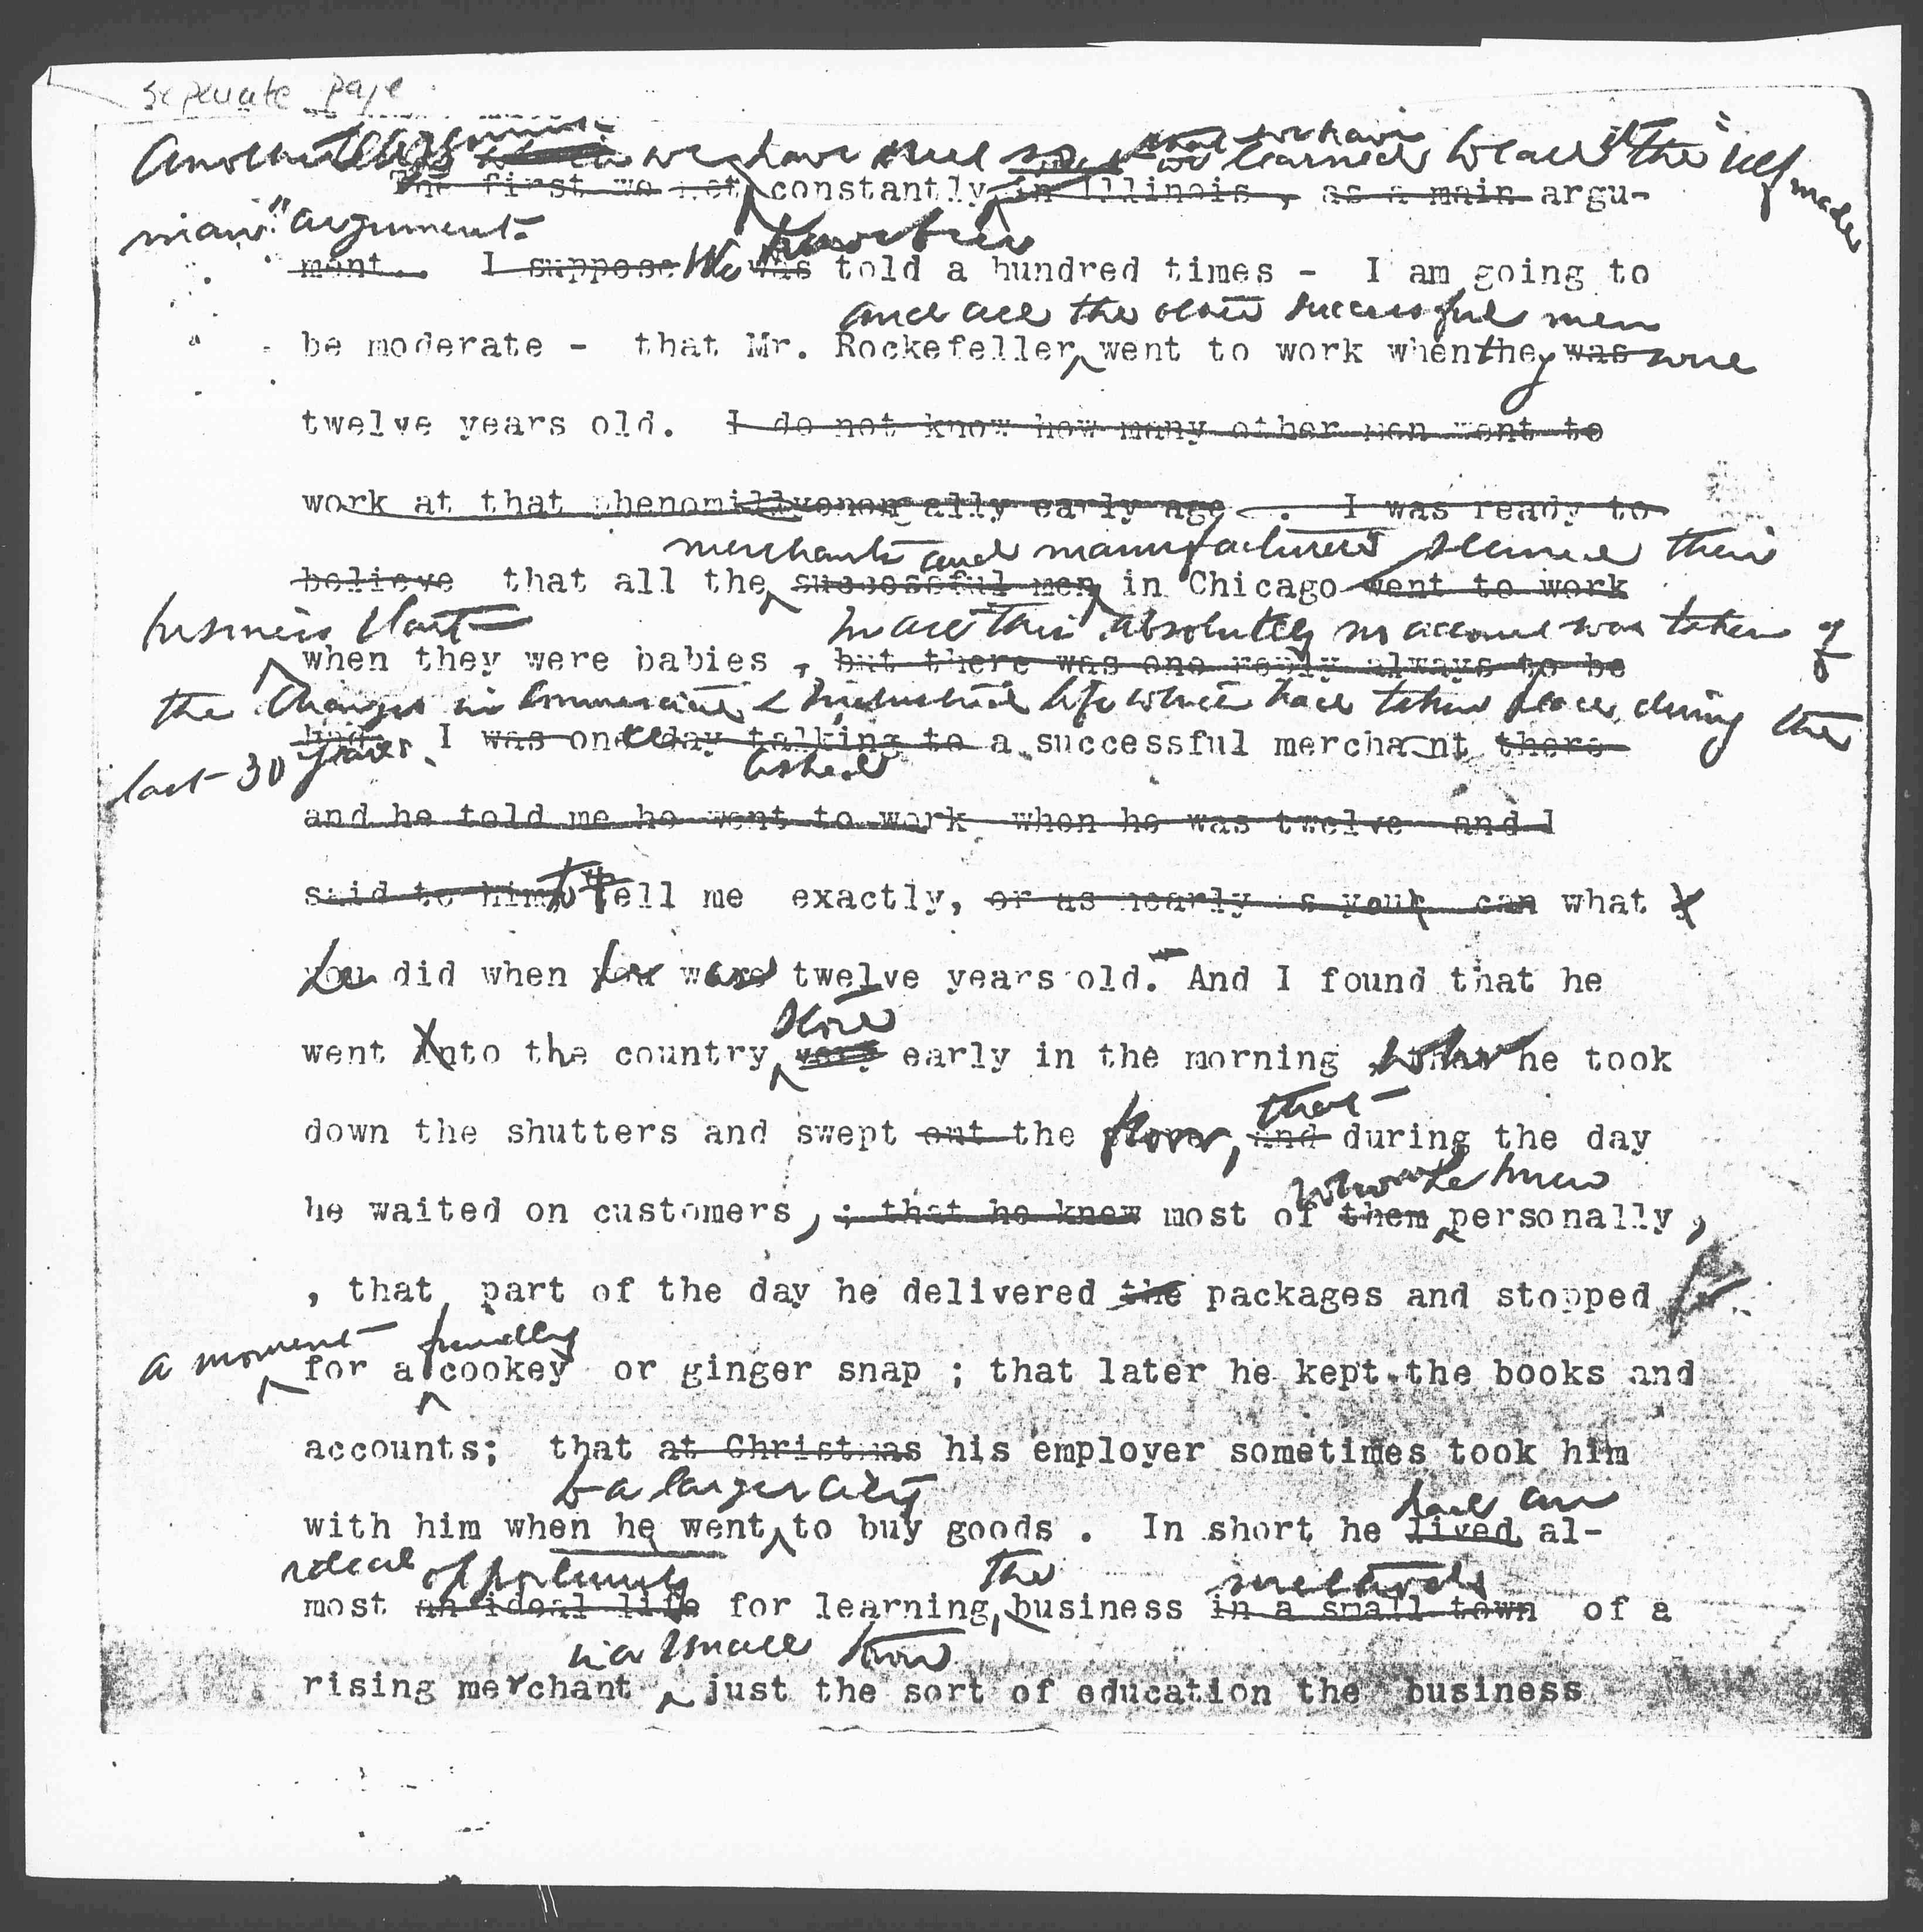 seperate page
Another argument we have met so that we have learned to call it the "self made
The first we met constantly in Illinois, as a main argu-
man" argument.
ment. I suppose We was have been told a hundred times - I am going to
and all the other successful men
be moderate - that Mr. Rockefeller went to work when they was were
twelve years old. I do not know how many other men went to
work at that early age . I was ready to
merchants and manufacturers seemed their
believe that all the successful men in Chicago went to work
business start
In all this absolutely no account was taken of
when they were babies , but there was one reply always to be
the changes in commercial & industrial life which had taken place during the
had. I was one day talking to a successful merchant there
last 30 years.
asked
and he told me he went to work when he was twelve and I
said to him to tell me exactly, or as nearly as you can what
he did when he was twelve years old. And I found that he
store
went into the country early in the morning where he took
that
down the shutters and swept out the floor, and during the day
whom he knew
he waited on customers, ; that he knew most of them personally,
, that part of the day he delivered the packages and stopped for
a moment friendly
for a cookey or ginger snap ; that later he kept the books and
accounts; that at Christmas his employer sometimes took him
to a larger city had an
with him when he went to buy goods . In short he lived al-
ideal opportunity the methods
most an ideal life for learning business in a small town of a
in a small town
rising merchant just the sort of education the business